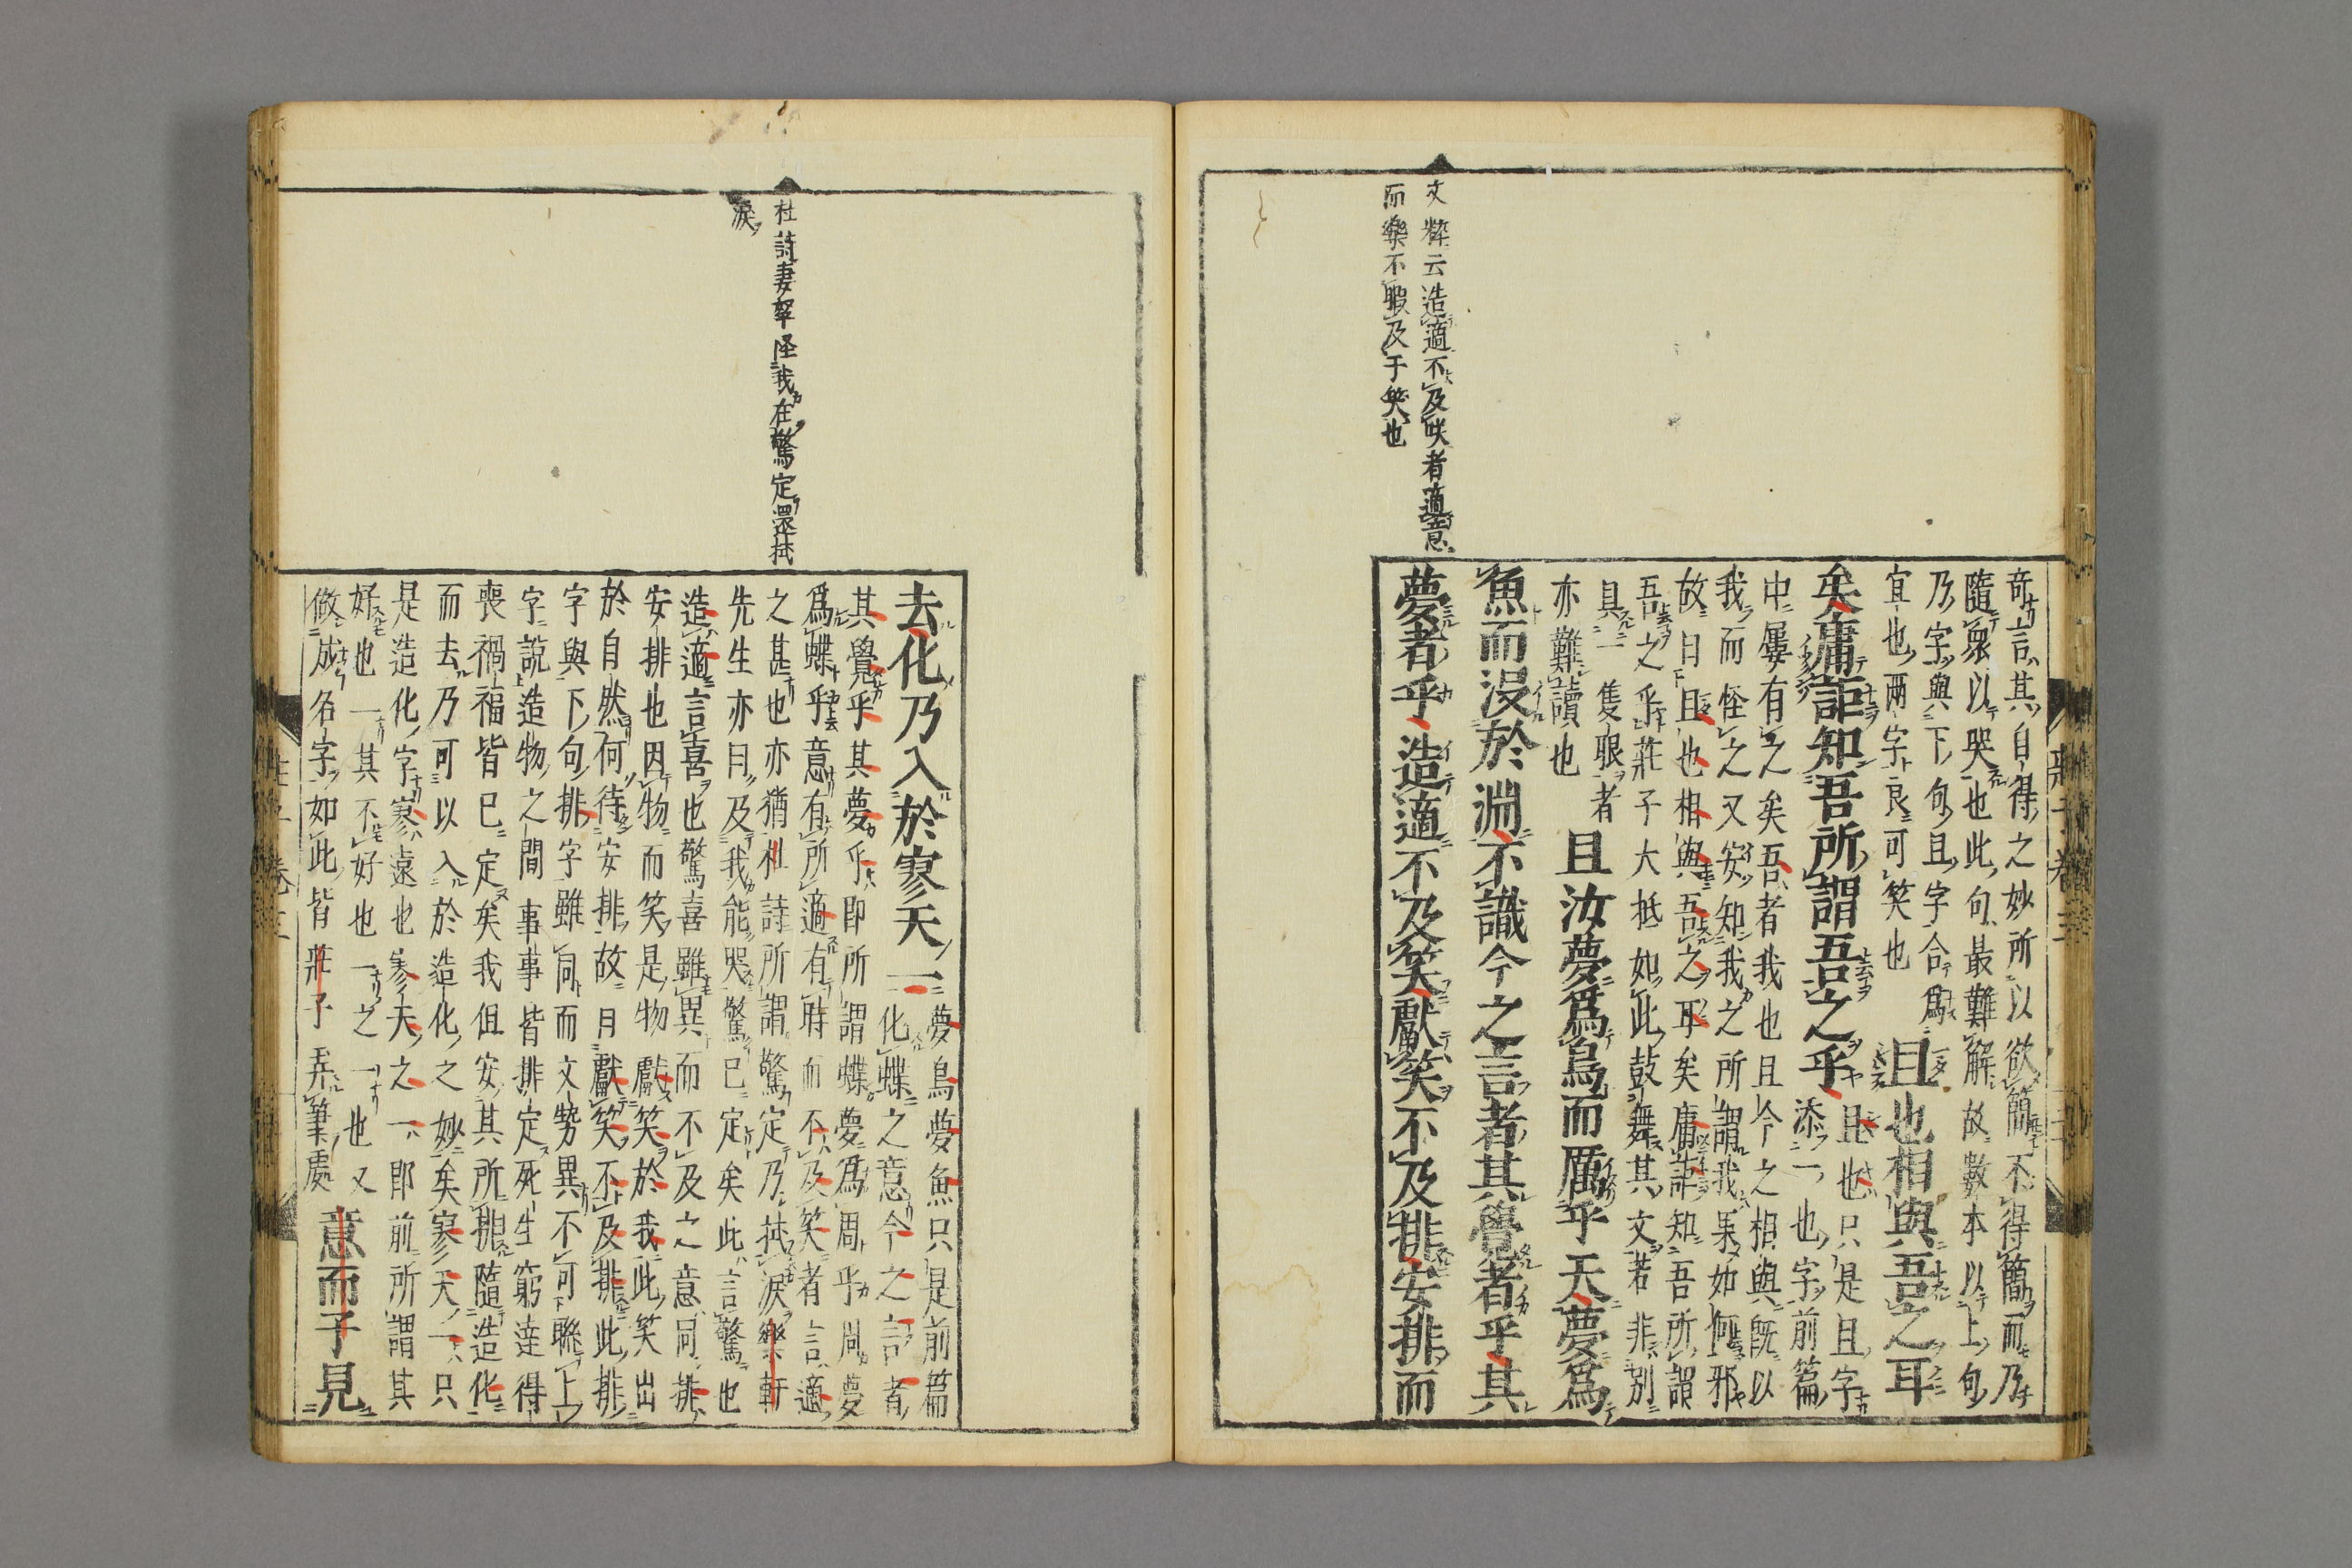 文粹云造適不及咲者適意
而樂不暇及于笑也
奇言其自得之妙所以欲簡不得簡而乃
隨衆以哭也此句最難解故數本以上句
乃字與下句且字合爲
宜也兩字良可笑也
且也相與吾之耳
矣庸詎知吾所謂吾之乎
且也只是且字
添一也字前篇
中屢有之矣吾者我也且今之相與既以
我而怪之又安知我之所謂我果如何邪
故曰且也相與吾之耳矣庸詎知吾所謂
吾之乎莊子大抵如此鼓舞其文若非別
具一隻眼者
亦難讀也
且汝夢爲鳥而厲乎天夢爲
魚而沒於淵不識今之言者其覺者乎其
夢者乎造適不及笑獻笑不及排安排而
莊子卷三
杜詩妻孥怪我在驚定還拭
淚
去化乃入於寥天一
夢鳥夢魚只是前篇
化蝶之意今之言者
其覺乎其夢乎即所謂蝶夢爲周乎周夢
爲蝶乎意有所適有時而不及笑者言適
之甚也亦猶杜詩所謂驚定乃拭淚樂軒
先生亦曰及我能哭驚已定矣此言驚也
造適言喜也驚喜雖異而不及之意同排
安排也因物而笑是物獻笑於我此笑出
於自然何待安排故曰獻笑不及排此排
字與下句排字雖同而文勢異不可聯上
字說造物之間事事皆排定死生窮達得
喪禍福皆已定矣我但安其所排隨造化
而去乃可以入於造化之妙矣寥天一只
是造化字寥遠也寥天之一即前所謂其
好也一其不好也一之一也又
做成名字如此皆莊子弄筆處
意而子見